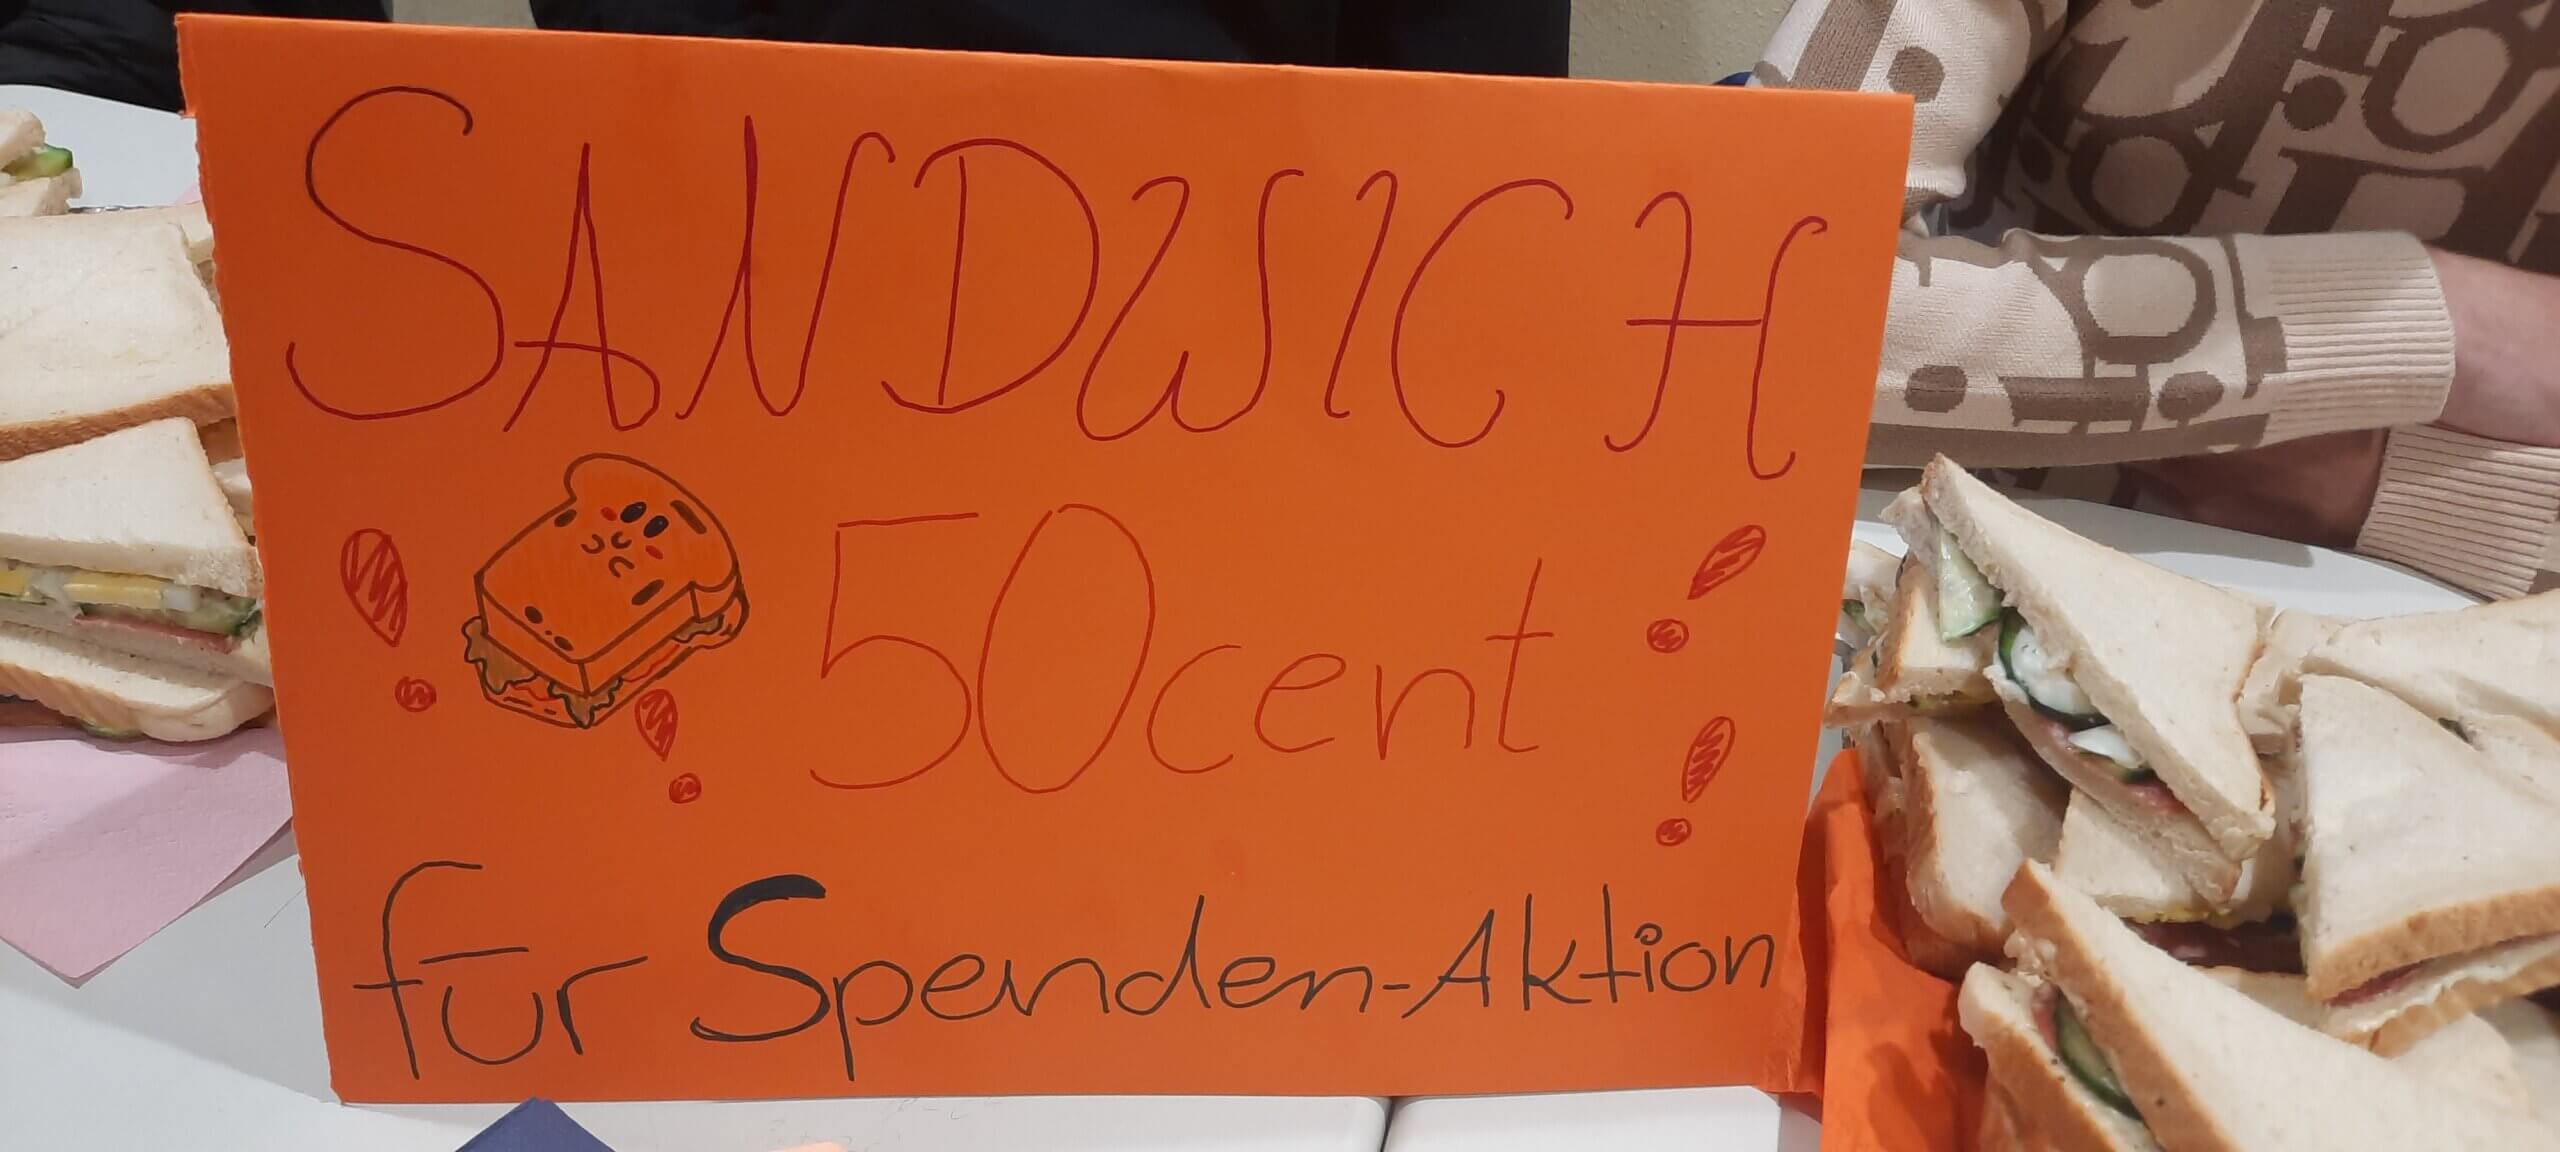 SANDWICH
! ! 50cent ! !
für Spenden-Aktion